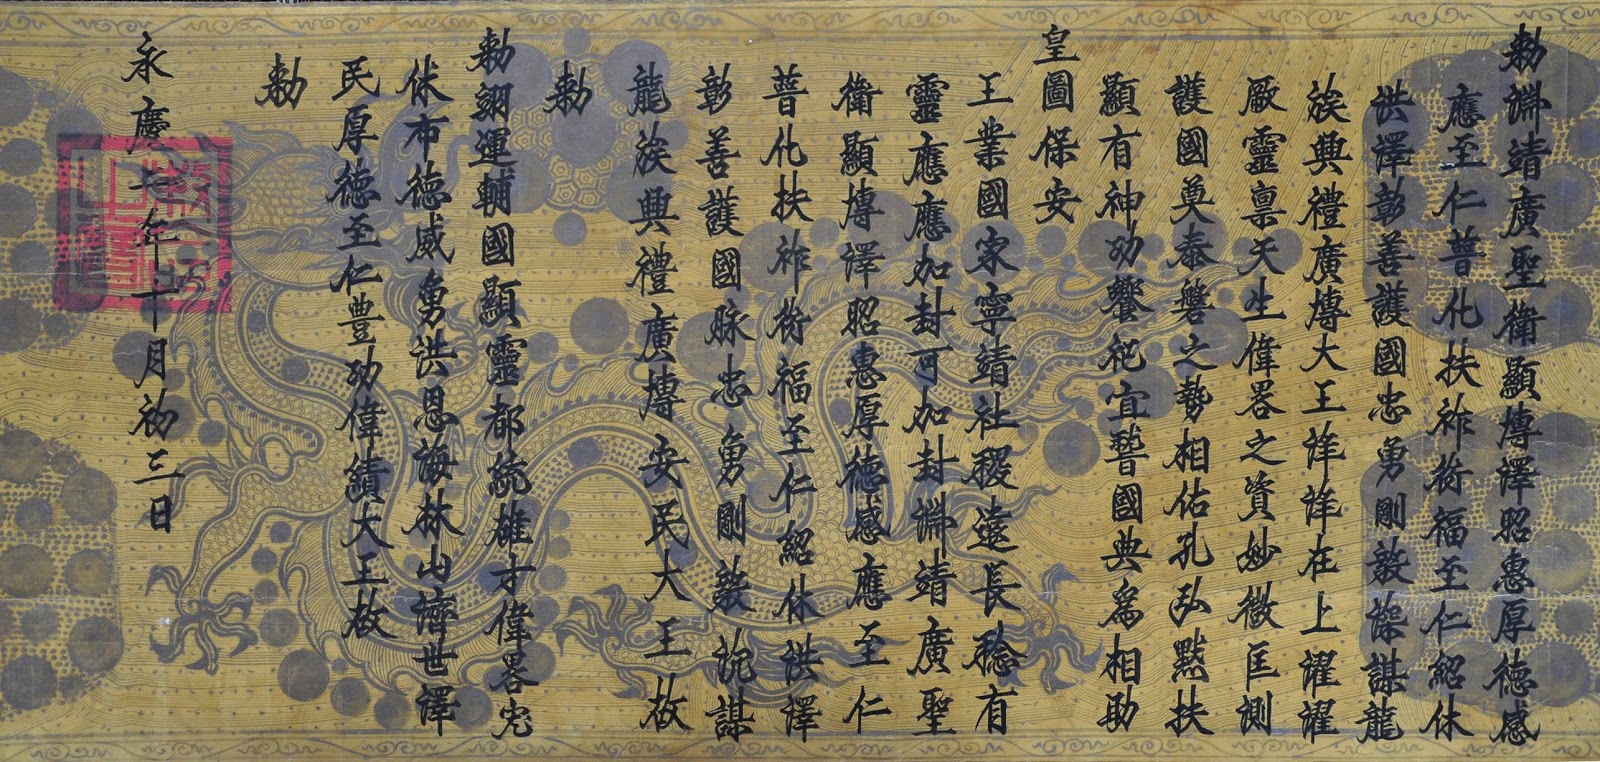 勅淵靖廣聖衛顯博澤昭惠厚德感
應至仁普化扶祚衍福至仁紹休
洪澤彰善護國忠勇剛毅謀龍
族興禮廣博大王洋洋在上濯濯
厥靈禀天生偉畧之資妙微匡測
護國奠泰磐之勢相佑孔弘黙扶
顯有神功饗祀宜國典為相助
皇圖保安
王業國家寧靖社稷遠長稔有
靈應應加封可加封淵靖廣聖
衛顯博澤昭惠厚德感應至仁
普化扶祚衍福至仁紹休洪澤
彰善護國脉忠勇剛毅謀
龍族興禮廣博安民大王故
勅
勅翊運輔國顯靈都統雄才偉畧宏
休布德威勇洪恩海林山濟世澤
民厚德至仁豐功偉績大王故
勅
永慶年十月初三日